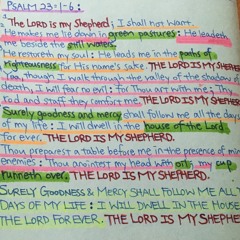 PSALM 23:1-6:
"The LORD is my Shepherd; I shall not want.
He makes me lie down in green pastures: He leadeth
me beside the still waters.
He restoreth my soul: He leads me in the paths of
righteousness for His name's sake. THE LORD IS MY SHEPHERD.
Yea, though I walk through the valley of the shadow of
death, I will fear no evil: for Thou art with me; Thy
rod and staff they comfort me. THE LORD IS MY SHEPHERD.
Surely goodness and mercy shall follow me all the days
of my life: I will dwell in the house of the Lord
for ever. THE LORD IS MY SHEPHERD.
Thou preparest a table before me in the presence of mine
enemies: Thou anointest my head with oil; my cup
runneth over. THE LORD IS MY SHEPHERD.
SURELY GOODNESS & MERCY SHALL FOLLOW ME ALL
DAYS OF MY LIFE: I WILL DWELL IN THE HOUSE
THE LORD FOR EVER. THE LORD IS MY SHEPHE